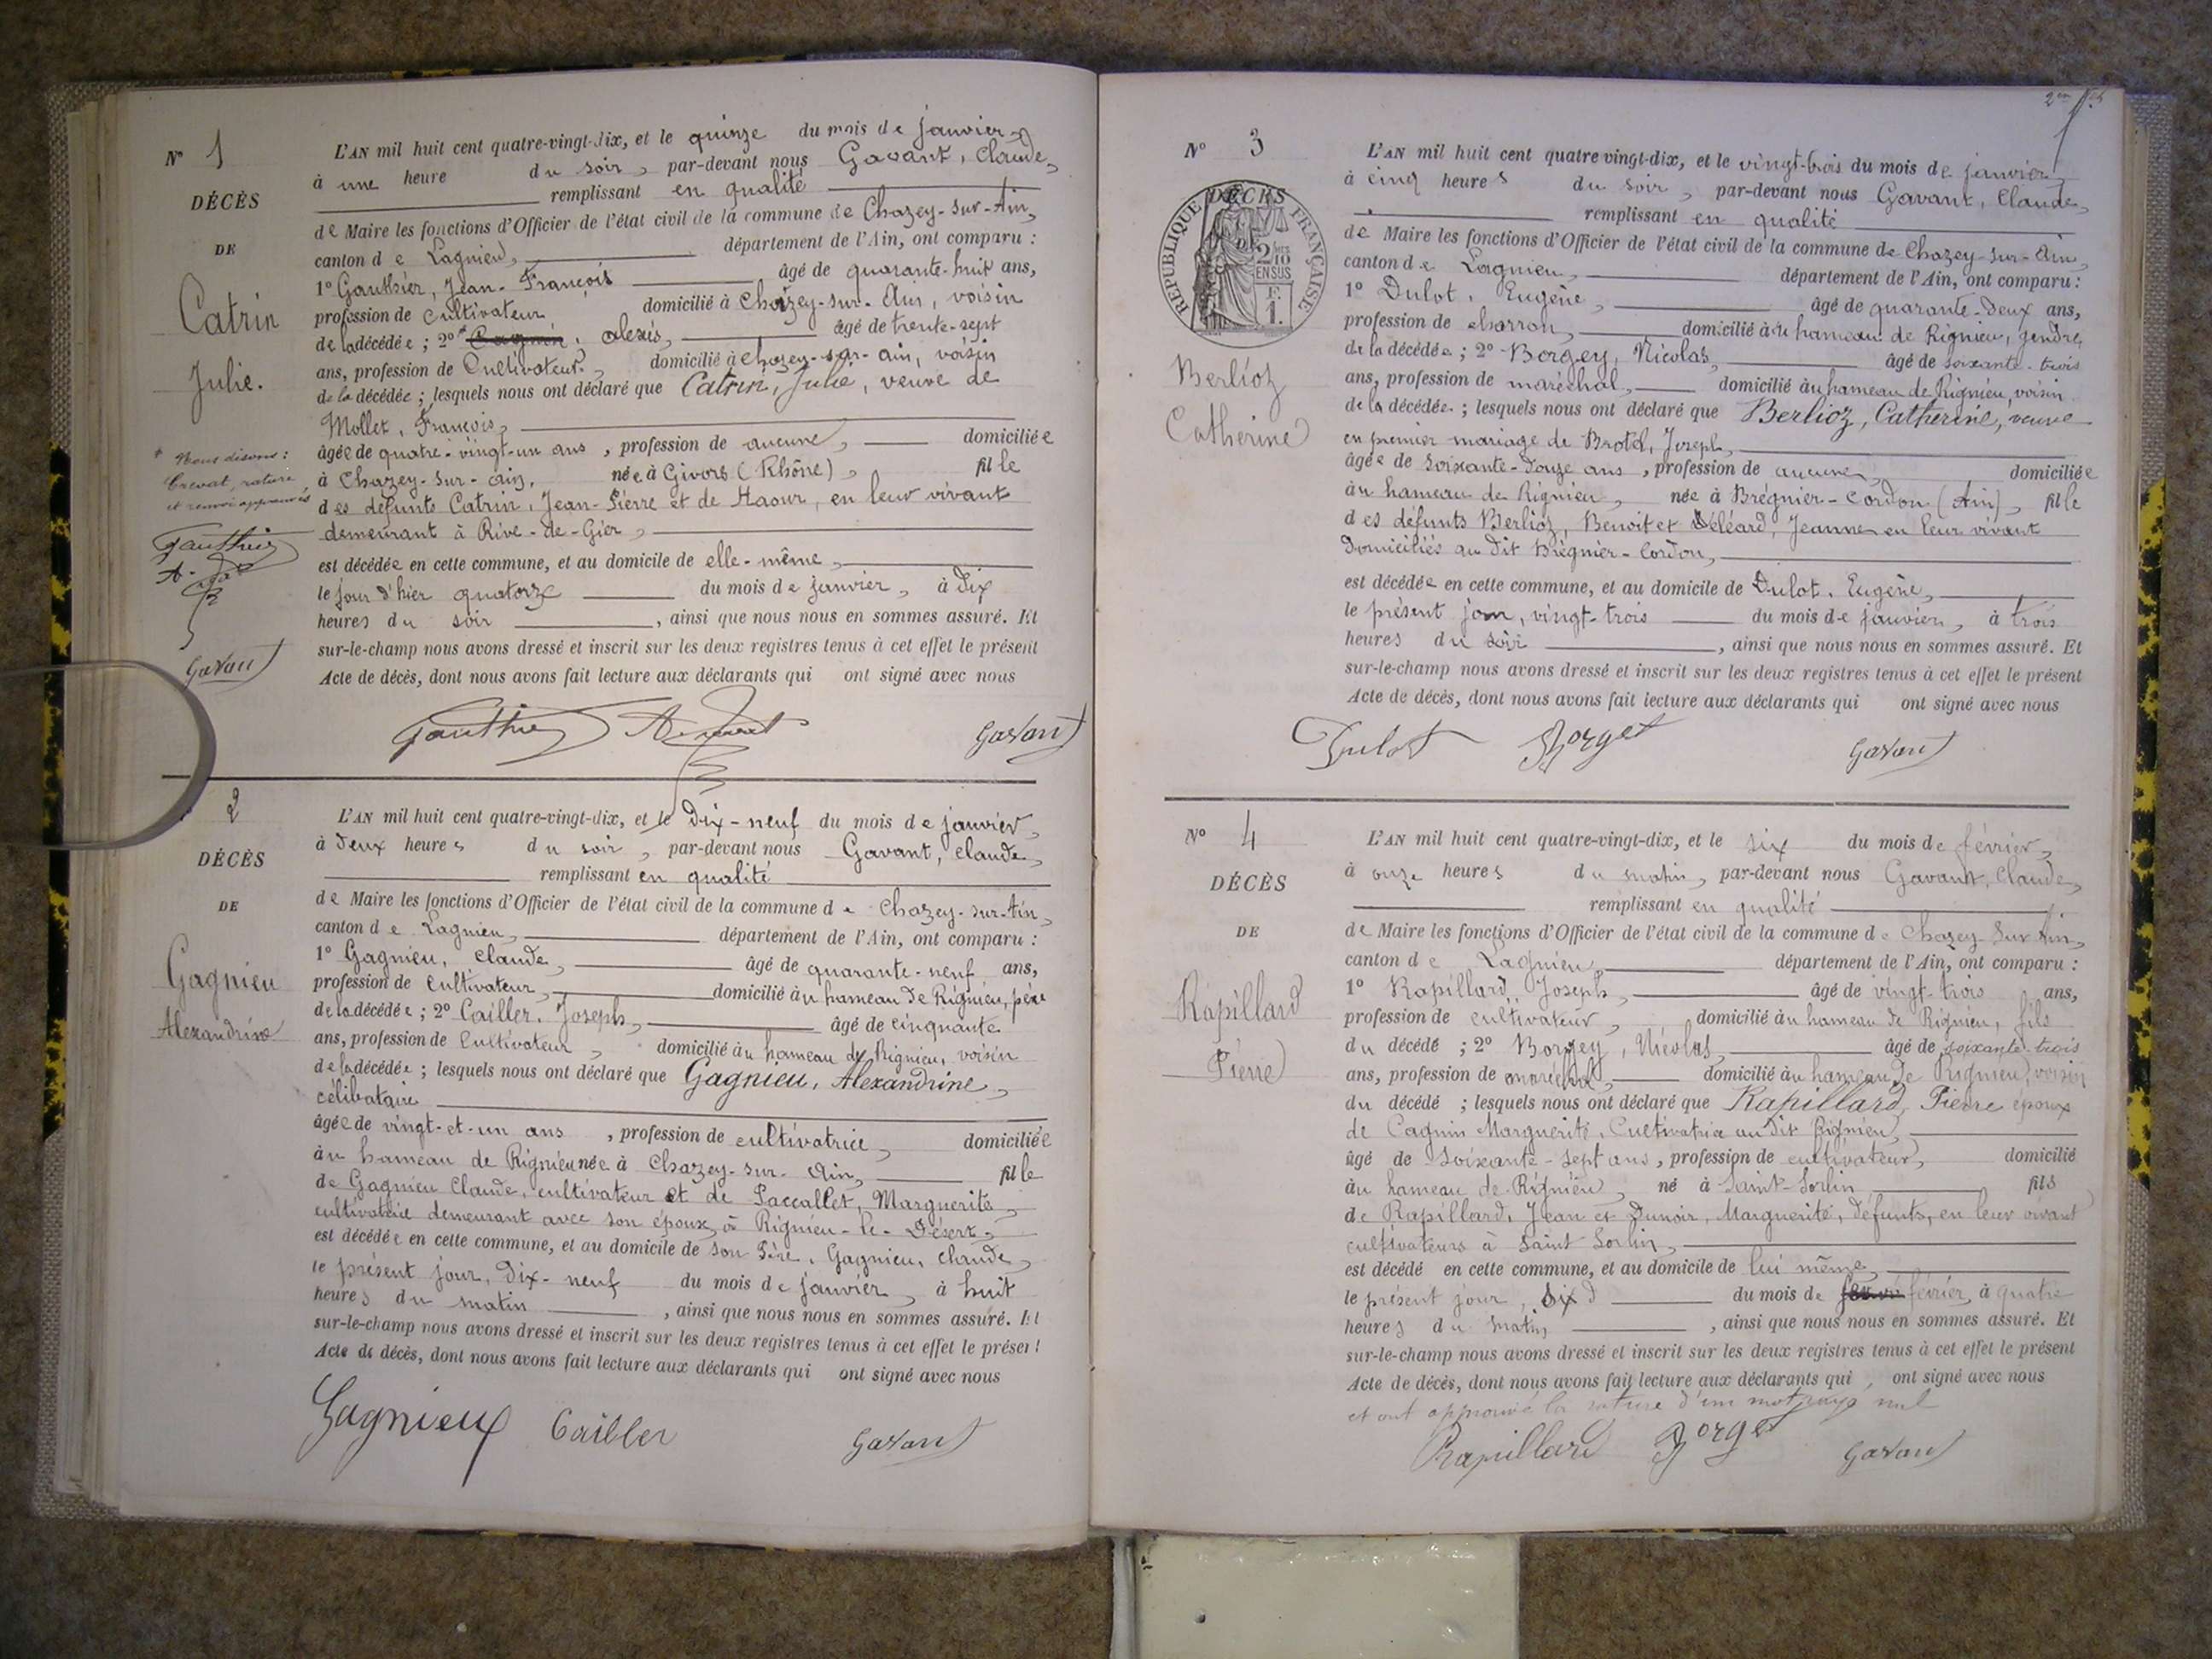 N° 1
DÉCÈS
DE
Catrin
Julie.
* Nous disons :
Crevat, rature
et renvoi approuvés
Gauthier
Gavant
L'AN mil huit cent quatre-vingt-dix, et le quinze du mois de janvier,
à une heure du soir, par-devant nous Gavant, Claude,
remplissant en qualité
de Maire les fonctions d'Officier de l'état civil de la commune de Chazey-sur-Ain,
canton de Lagnieu, département de l'Ain, ont comparu :
1° Gauthier, Jean-François âgé de quarante-huit ans,
profession de cultivateur domicilié à Chazey-sur-Ain, voisin
de la décédée ; 2° * alexis, âgé de trente-sept
ans, profession de Cultivateur, domicilié à chazey-sur-ain, voisin
de la décédée ; lesquels nous ont déclaré que Catrin, Julie, veuve de
Mollet, François,
âgée de quatre-vingt-un ans, profession de aucune, domiciliée
à Chazey-sur-ain, née à Givors (Rhône), fille
des défunts Catrin, Jean-Pierre et de Maour, en leur vivant
demeurant à Rive-de-Gier,
est décédée en cette commune, et au domicile de elle-même,
le jour d'hier quatorze du mois de janvier, à dix
heures du soir, ainsi que nous nous en sommes assuré. Et
sur-le-champ nous avons dressé et inscrit sur les deux registres tenus à cet effet le présent
Acte de décès, dont nous avons fait lecture aux déclarants qui ont signé avec nous
Gauthier Gavant
2
DÉCÈS
DE
Gagnieu
Alexandrine
L'AN mil huit cent quatre-vingt-dix, et le dix-neuf du mois de janvier,
à deux heures du soir, par-devant nous Gavant, Claude,
remplissant en qualité
de Maire les fonctions d'Officier de l'état civil de la commune de Chazey-sur-Ain,
canton de Lagnieu, département de l'Ain, ont comparu :
1° Gagnieu, Claude, âgé de quarante-neuf ans,
profession de Cultivateur, domicilié au hameau de Rignieu, père
de la décédée ; 2° Cailler, Joseph, âgé de cinquante
ans, profession de Cultivateur, domicilié au hameau de Rignieu, voisin
de la décédée ; lesquels nous ont déclaré que Gagnieu, Alexandrine,
célibataire
âgée de vingt-et-un ans, profession de cultivatrice, domiciliée
au hameau de Rignieu née à Chazey-sur-Ain, fille
de Gagnieu Claude, cultivateur et de Paccallet, Marguerite,
cultivatrice demeurant avec son époux, à Rignieu-le-Désert,
est décédée en cette commune, et au domicile de son Père, Gagnieu, Claude,
le présent jour, dix-neuf du mois de janvier, à huit
heures du matin, ainsi que nous nous en sommes assuré. Et
sur-le-champ nous avons dressé et inscrit sur les deux registres tenus à cet effet le présent
Acte de décès, dont nous avons fait lecture aux déclarants qui ont signé avec nous
Gagnieux Cailler Gavant
N° 3
RÉPUBLIQUE FRANÇAISE
DÉCRS
2 10
EN SUS
F.
1.
Berlioz
Catherine
L'AN mil huit cent quatre vingt-dix, et le vingt-trois du mois de janvier,
à cinq heures du soir, par-devant nous Gavant, Claude,
remplissant en qualité
de Maire les fonctions d'Officier de l'état civil de la commune de Chazey-sur-Ain,
canton de Lagnieu, département de l'Ain, ont comparu :
1° Dulot, Eugène, âgé de quarante-deux ans,
profession de charron, domicilié au hameau de Rignieu, gendre,
de la décédée ; 2° Borgey, Nicolas, âgé de soixante-trois
ans, profession de maréchal, domicilié au hameau de Rignieu, voisin
de la décédée ; lesquels nous ont déclaré que Berlioz, Catherine, veuve
en premier mariage de Brotel, Joseph,
âgée de soixante-douze ans, profession de aucune, domiciliée
au hameau de Rignieu, née à Brégnier-Cordon (Ain), fille
des défunts Berlioz, Benoit et Déléard, Jeanne en leur vivant
domiciliés au dit Brégnier-Cordon,
est décédée en cette commune, et au domicile de Dulot, Eugène,
le présent jour, vingt-trois du mois de janvier, à trois
heures du soir, ainsi que nous nous en sommes assuré. Et
sur-le-champ nous avons dressé et inscrit sur les deux registres tenus à cet effet le présent
Acte de décès, dont nous avons fait lecture aux déclarants qui ont signé avec nous
Dulot Borget Gavant
N° 4
DÉCÈS
DE
Rapillard
Pierre
L'AN mil huit cent quatre-vingt-dix, et le six du mois de février,
à onze heures du matin, par-devant nous Gavant, Claude,
remplissant en qualité
de Maire les fonctions d'Officier de l'état civil de la commune de Chazey-sur-Ain,
canton de Lagnieu, département de l'Ain, ont comparu :
1° Rapillard, Joseph, âgé de vingt-trois ans,
profession de cultivateur, domicilié au hameau de Rignieu, fils
du décédé ; 2° Borgey, Nicolas, âgé de soixante-trois
ans, profession de maréchal, domicilié au hameau de Rignieu, voisin
du décédé ; lesquels nous ont déclaré que Rapillard, Pierre époux
de Cagnin Marguerite, Cultivatrice au dit Rignieu,
âgé de soixante-sept ans, profession de cultivateur, domicilié
au hameau de Rignieu, né à Saint-Sorlin fils
de Rapillard, Jean et Dunoir, Marguerite, défunts, en leur vivant
cultivateurs à Saint Sorlin,
est décédé en cette commune, et au domicile de lui même,
le présent jour, six du mois de février, à quatre
heures du matin, ainsi que nous nous en sommes assuré. Et
sur-le-champ nous avons dressé et inscrit sur les deux registres tenus à cet effet le présent
Acte de décès, dont nous avons fait lecture aux déclarants qui, ont signé avec nous
et ont approuvé la rature d'un mot rayé nul
Rapillard Borget Gavant